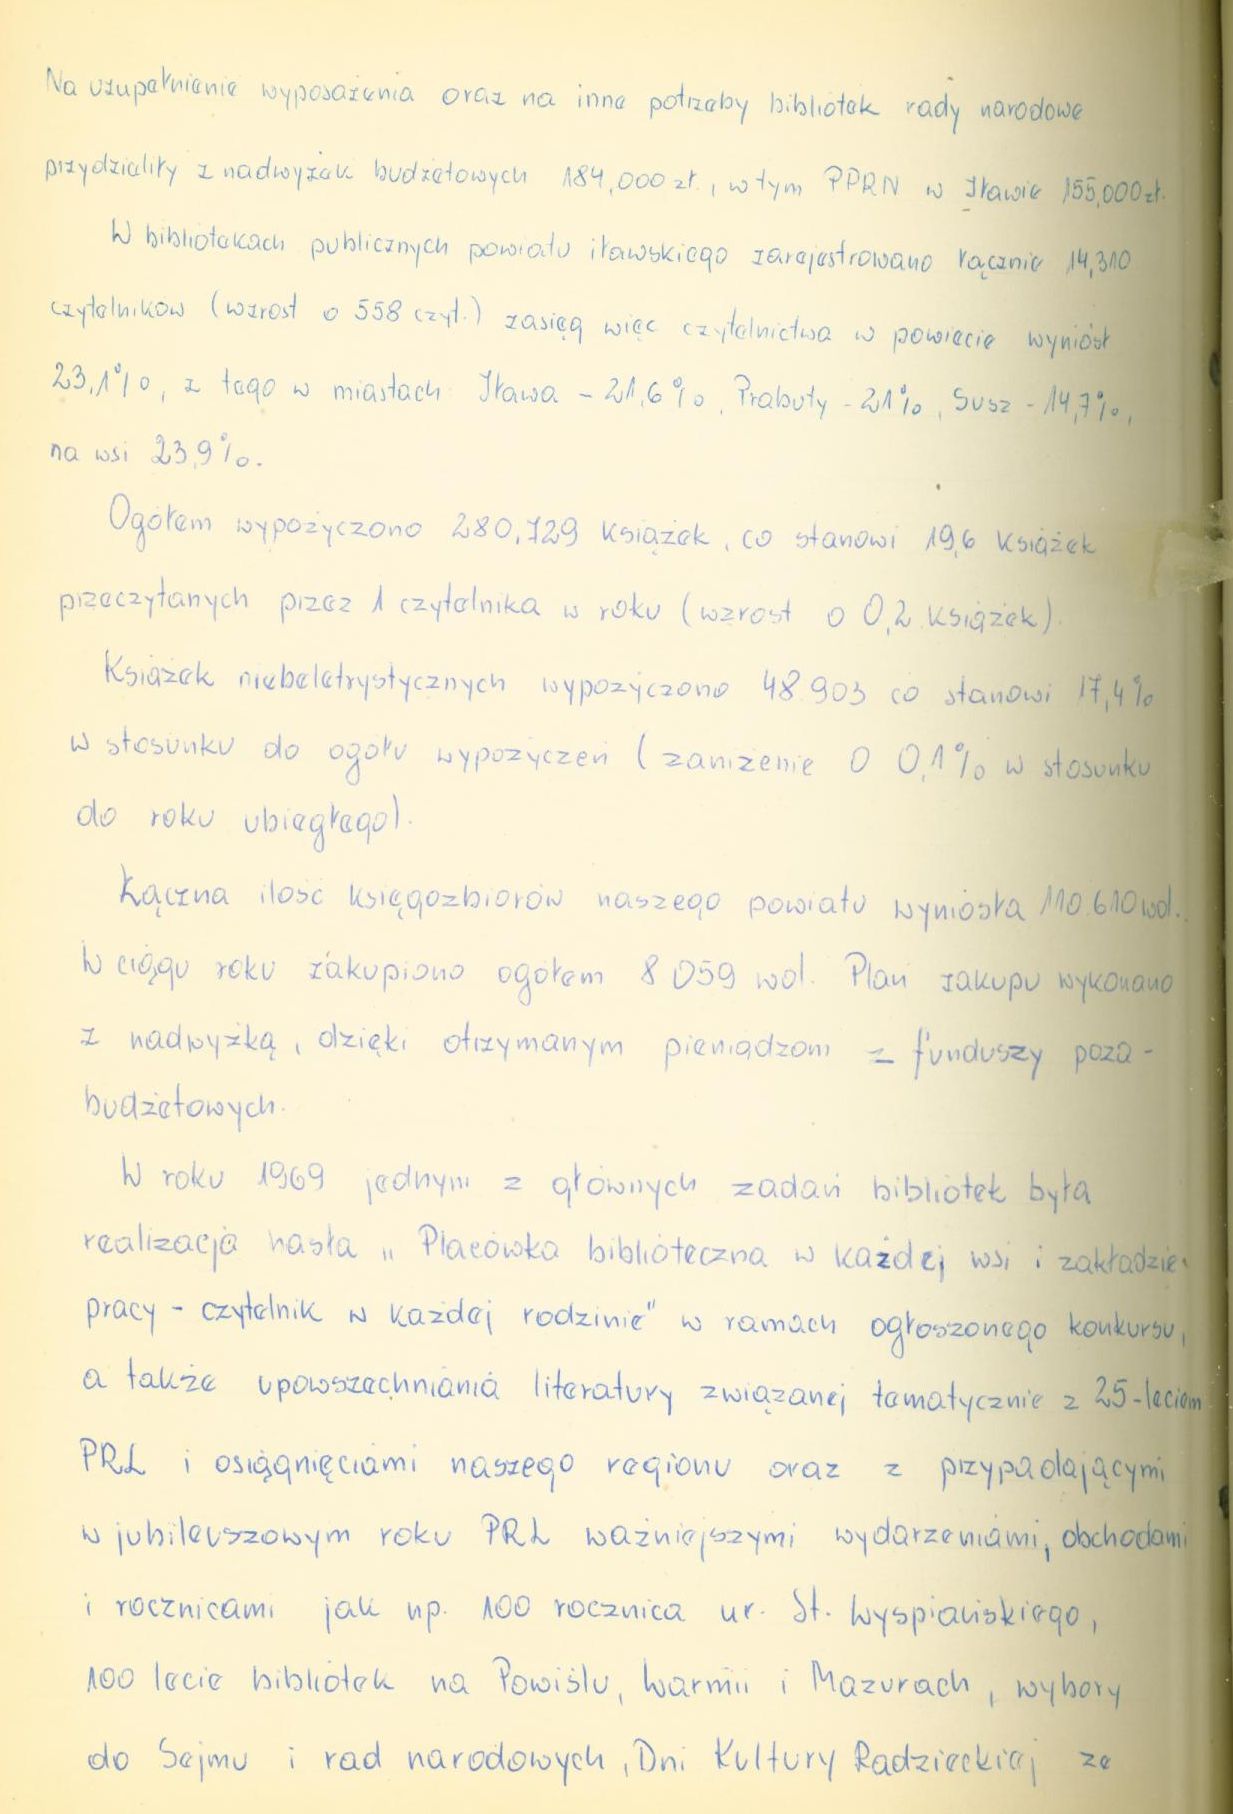 Na uzupełnienie wyposażenia oraz na inne potrzeby bibliotek rady narodowe
przydzieliły z nadwyżek budżetowych 184,000 zł., w tym PPRN w Iławie 155,000 zł.
W bibliotekach publicznych powiatu iławskiego zarejestrowano łącznie 14,310
czytelników (wzrost o 558 czyt.) zasięg więc czytelnictwa w powiecie wyniósł
23,1%, z tego w miastach: Iława - 21,6%, Prabuty - 21%, Susz - 14,7%,
na wsi 23,9%.
Ogółem wypożyczono 280,729 książek, co stanowi 19,6 książek
przeczytanych przez 1 czytelnika w roku (wzrost o 0,2 książek).
Książek niebeletrystycznych wypożyczono 48.903 co stanowi 17,4%
w stosunku do ogółu wypożyczeń (zaniżenie o 0,1% w stosunku
do roku ubiegłego).
Łączna ilość księgozbiorów naszego powiatu wyniosła 110.610 wol.
W ciągu roku zakupiono ogółem 8 059 wol. Plan zakupu wykonano
z nadwyżką, dzięki otrzymanym pieniądzom z funduszy poza-
budżetowych.
W roku 1969 jednym z głównych zadań bibliotek była
realizacja hasła „Placówka biblioteczna w każdej wsi i zakładzie
pracy - czytelnik w każdej rodzinie" w ramach ogłoszonego konkursu,
a także upowszechniania literatury związanej tematycznie z 25-leciem
PRL i osiągnięciami naszego regionu oraz z przypadającymi
w jubileuszowym roku PRL ważniejszymi wydarzeniami, obchodami
i rocznicami jak np. 100 rocznica ur. St. Wyspiańskiego,
100 lecie bibliotek na Powiślu, Warmii i Mazurach, wybory
do Sejmu i rad narodowych, Dni Kultury Radzieckiej ze